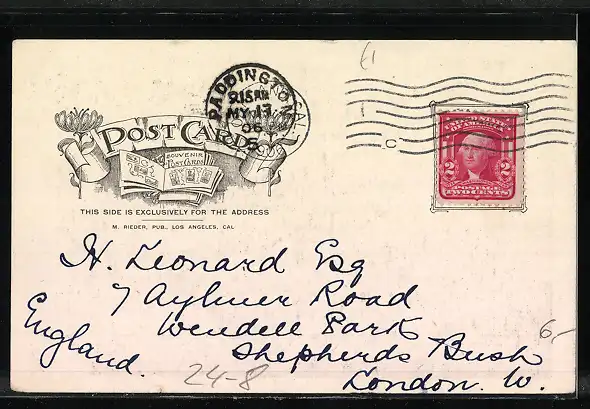 PADDINGTON
9.15 AM
MY 17
06
POST CARD
SOUVENIR
POST CARDS
THIS SIDE IS EXCLUSIVELY FOR THE ADDRESS
M. RIEDER, PUB., LOS ANGELES, CAL
UNITED STATES
OF AMERICA
2 2
POSTAGE
TWO CENTS
H. Leonard Esq
7 Aylmer Road
Wendell Park
Shepherds Bush
London. W.
England.
24-8
6,-